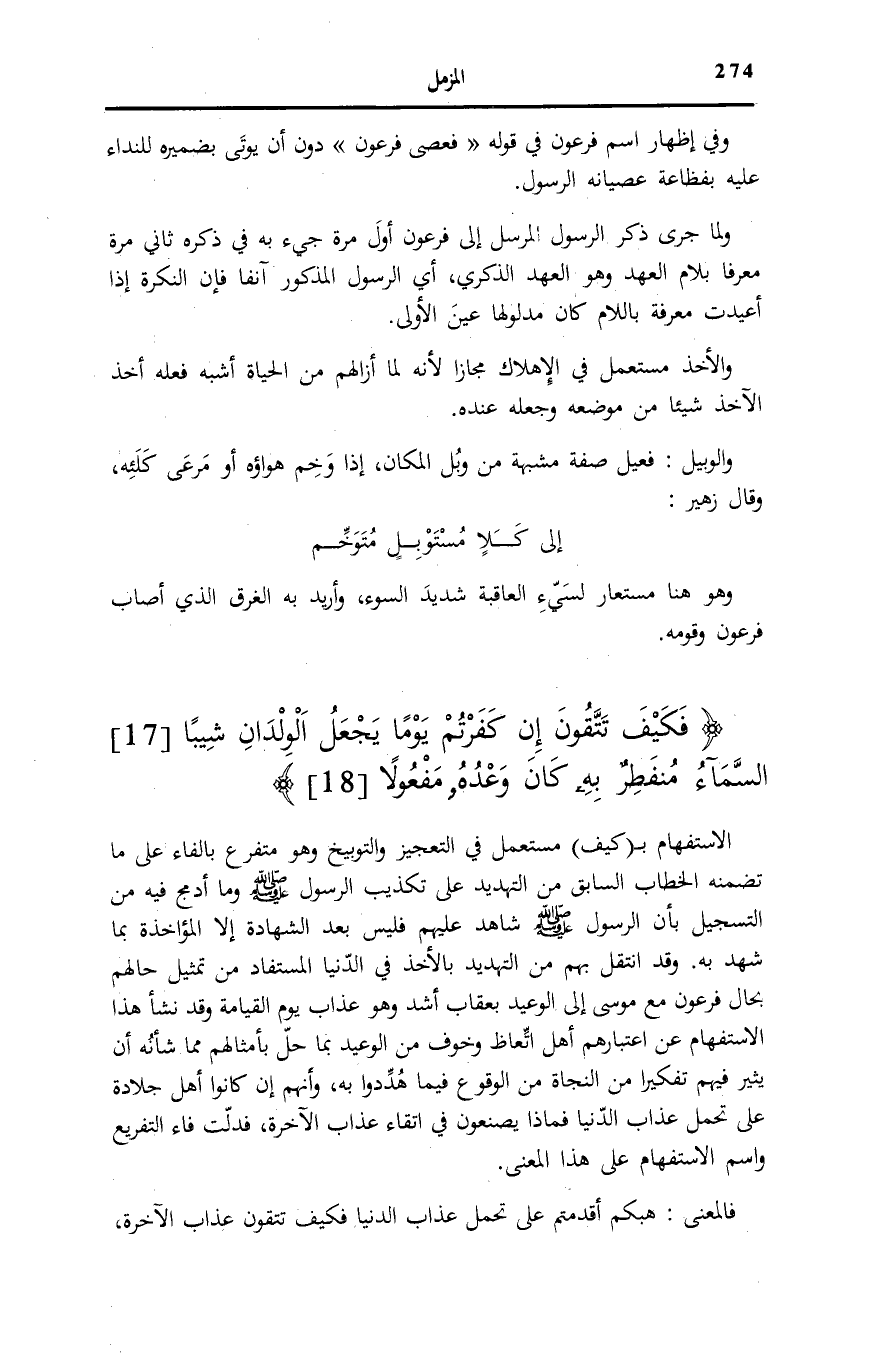 274
المزمل
وفي إظهار اسم فرعون في قوله « فعصى فرعون » دون أن يوتَى بضميره للنداء
عليه بفظاعة عصيانه الرسول.
ولما جرى ذكر الرسول المرسل إلى فرعون أولَ مرة جيء به في ذكره ثاني مرة
معرفا بلام العهد وهو العهد الذكري، أي الرسول المذكور آنفا فإن النكرة إذا
أعيدت معرفة باللام كان مدلولها عينَ الأولى.
والأخذ مستعمل في الإهلاك مجازا لأنه لما أزالهم من الحياة أشبه فعله أخذ
الآخذ شيئا من موضعه وجعله عنده.
والوبيل : فعيل صفة مشبهة من وبُل المكان، إذا وَخِم هواؤه أو مَرعَى كَلَئِه،
وقال زهير :
إلى كَــلإٍ مُسْتَوْبِــلٍ مُتَوَخِّــم
وهو هنا مستعار لسَيّءِ العاقبة شديدَ السوء، وأريد به الغرق الذي أصاب
فرعون وقومه.
﴿ فَكَيْفَ تَتَّقُونَ إِن كَفَرْتُمْ يَوْمًا يَجْعَلُ اَلْوِلْدَانِ شِيبًا [17]
السَّمَآءُ مُنفَطِرٌ بِهِۦ كَانَ وَعْدُهُۥ مَفْعُولًا [18] ﴾
الاستفهام بـ(كيف) مستعمل في التعجيز والتوبيخ وهو متفرع بالفاء على ما
تضمنه الخطاب السابق من التهديد على تكذيب الرسول ﷺ وما أدمج فيه من
التسجيل بأن الرسول ﷺ شاهد عليهم فليس بعد الشهادة إلا المؤاخذة بما
شهد به. وقد انتقل بهم من التهديد بالأخذ في الدّنيا المستفاد من تمثيل حالهم
بحال فرعون مع موسى إلى الوعيد بعقاب أشد وهو عذاب يوم القيامة وقد نشأ هذا
الاستفهام عن اعتبارهم أهل اتِّعاظ وخوف من الوعيد بما حلّ بأمثالهم مما شأنُه أن
يثير فيهم تفكيرا من النجاة من الوقوع فيما هُدِّدوا به، وأنهم إن كانوا أهل جلادة
على تحمل عذاب الدّنيا فماذا يصنعون في اتقاء عذاب الآخرة، فدلّت فاء التفريع
واسم الاستفهام على هذا المعنى.
فالمعنى : هبكم أقدمتم على تحمل عذاب الدنيا فكيف تتقون عذاب الآخرة،